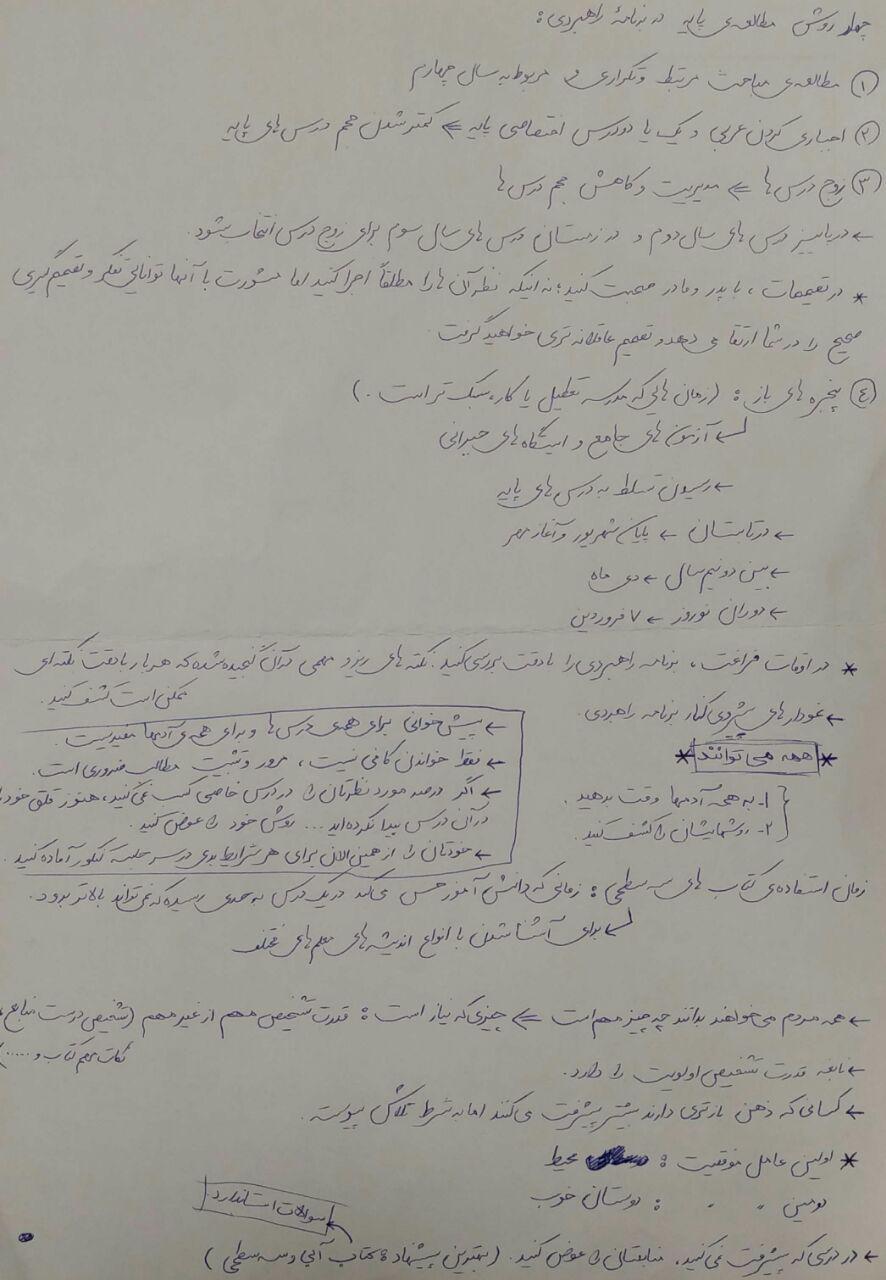 چهار روش مطالعه‌ی پایه در برنامهٔ راهبردی :
① مطالعه‌ی مباحث مرتبط و تکراری و مربوط به سال چهارم
② اجباری کردن عربی و یک یا دو درس اختصاصی پایه ⇐ کمتر شدن حجم درس های پایه
③ زوج درس ها ⇐ مدیریت و کاهش حجم درس ها
← در پاییز درس های سال دوم و در زمستان درس های سال سوم برای زوج درس انتخاب بشود.
* در تصمیمات ، با پدر و مادر صحبت کنید؛ نه اینکه نظر آن ها را مطلقاً اجرا کنید اما مشورت با آنها توانایی تفکر و تصمیم گیری
صحیح را در شما ارتقا می دهد و تصمیم عاقلانه تری خواهید گرفت.
④ پنجره های باز : (زمان هایی که مدرسه تعطیل یا کار، سبک تر است .)
← آزمون های جامع و ایستگاه های جبرانی
← رسیدن تسلط به درس های پایه
← در تابستان ← پایان شهریور و آغاز مهر
← بین دو نیم سال ← دی ماه
← دوران نوروز ← ۷ فروردین
* در اوقات فراغت ، برنامه راهبردی را با دقت بررسی کنید. نکته های ریز و مهمی در آن گنجیده شده که هر بار با دقت نکته ای
ممکن است کشف کنید.
← نمودار های پیشروی کنار برنامه راهبردی.
* همه می توانند *
۱- به همه آدمها وقت بدهید.
۲- روشهایشان را کشف کنید.
← پیش خوانی برای همه‌ی درس ها و برای همه‌ی آدمها مفید نیست.
← فقط خواندن کافی نیست ، مرور و تثبیت مطالب ضروری است.
← اگر درصد مورد نظرتان را در درس خاصی کسب نمی کنید، هنوز قلق خود
در آن درس پیدا نکرده اید ... روش خود را عوض کنید.
← خودتان را از همین الان برای هر شرایط بدی در سر جلسه کنکور آماده کنید.
زمان استفاده‌ی کتاب های سه سطحی : زمانی که دانش آموز حس می کند در یک درس به حدی رسیده که نمی تواند بالاتر برود.
← برای آشنا شدن با انواع اندیشه های معلم های مختلف
← همه مردم می خواهند بدانند چه چیز مهم است ⇐ چیزی که نیاز است : قدرت تشخیص مهم از غیر مهم (تشخیص درست منابع،
نکات مهم کتاب و .....)
← نابغه قدرت تشخیص اولویت را دارد.
← کسانی که ذهن بازتری دارند بیشتر پیشرفت می کنند اما به شرط تلاش پیوسته.
* اولین عامل موفقیت : محیط
دومین " " : دوستان خوب
سوالات استاندارد
← در درسی که پیشرفت نمی کنید، منابعتان را عوض کنید. (بهترین پیشنهاد : کتاب آبی و سه سطحی)